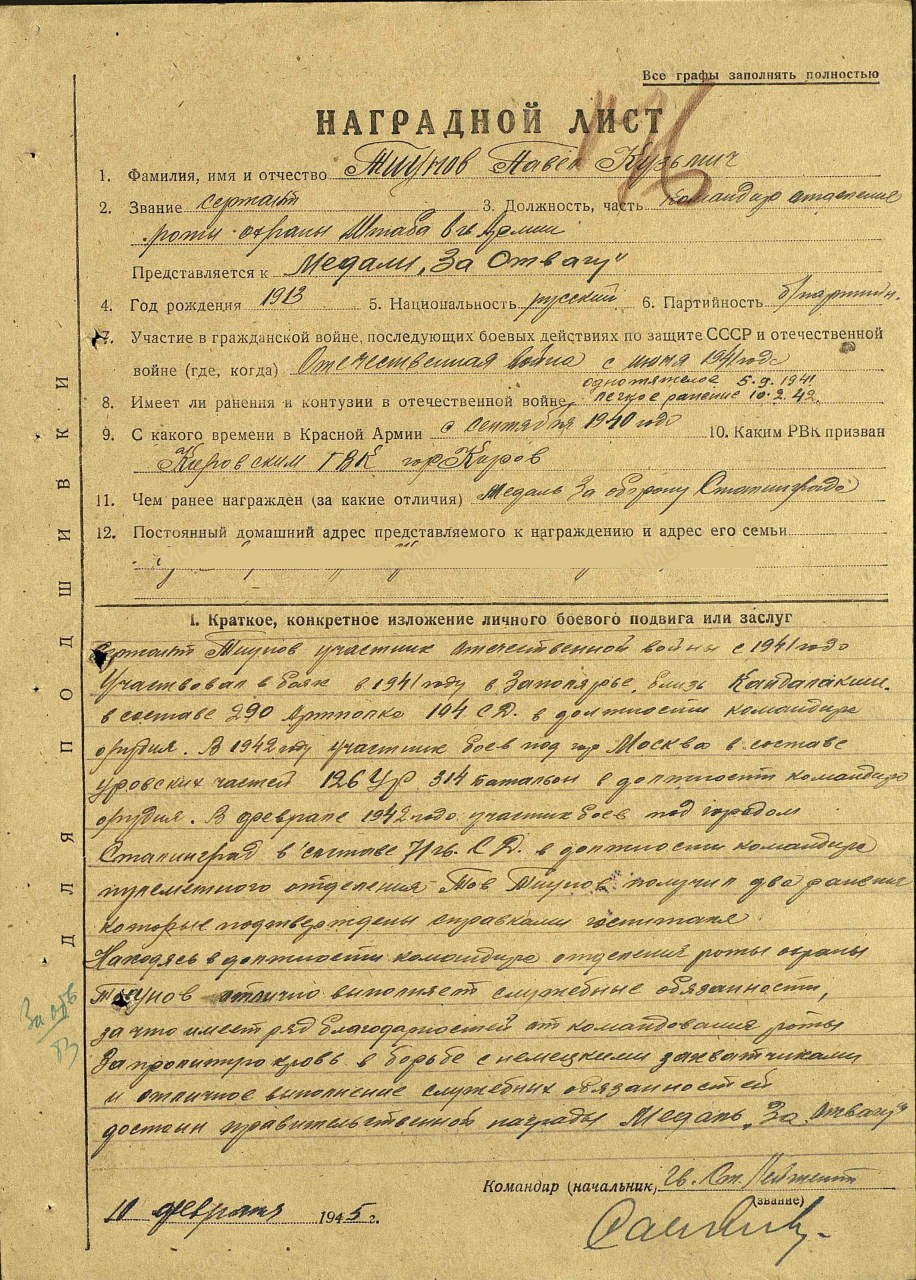 Все графы заполнять полностью
НАГРАДНОЙ ЛИСТ
1. Фамилия, имя и отчество Тиунов Павел Кузьмич
2. Звание сержант 3. Должность, часть командир отделения
роты охраны Штаба 8 гв Армии
Представляется к Медали „За Отвагу"
4. Год рождения 1913 5. Национальность русский 6. Партийность б/партийн.
7. Участие в гражданской войне, последующих боевых действиях по защите СССР и отечественной
войне (где, когда) Отечественная война с июня 1941 года
одно тяжелое 5.9.1941
8. Имеет ли ранения и контузии в отечественной войне легкое ранение 10.2.42.
9. С какого времени в Красной Армии с сентября 1940 года 10. Каким РВК призван
Кировским ГВК гор Киров
11. Чем ранее награжден (за какие отличия) Медаль За оборону Сталинграда
12. Постоянный домашний адрес представляемого к награждению и адрес его семьи
I. Краткое, конкретное изложение личного боевого подвига или заслуг
Сержант Тиунов участник отечественной войны с 1941 года
Участвовал в боях в 1941 году в Заполярье, близь Кандалакши.
в составе 290 Артполка 104 С.Д. в должности командира
орудия. В 1942 году участник боев под гор Москва в составе
уровских частей 126 УР 314 батальон в должности командира
орудия. В феврале 1942 года участник боев под городом
Сталинград в составе 71 гв. С.Д. в должности командира
пулеметного отделения Тов Тиунов получил два ранения
которые подтверждены справками госпиталя
Находясь в должности командира отделения роты охраны
Тиунов отлично выполняет служебные обязанности,
за что имеет ряд благодарностей от командования роты
За пролитую кровь в борьбе с немецкими захватчиками
и отличное выполнение служебных обязанностей
достоин правительственной награды Медаль „За Отвагу"
Командир (начальник) Гв. Ст. Лейтенант
(звание)
10 февраля 1945 г.
ДЛЯ ПОДШИВКИ
За отв